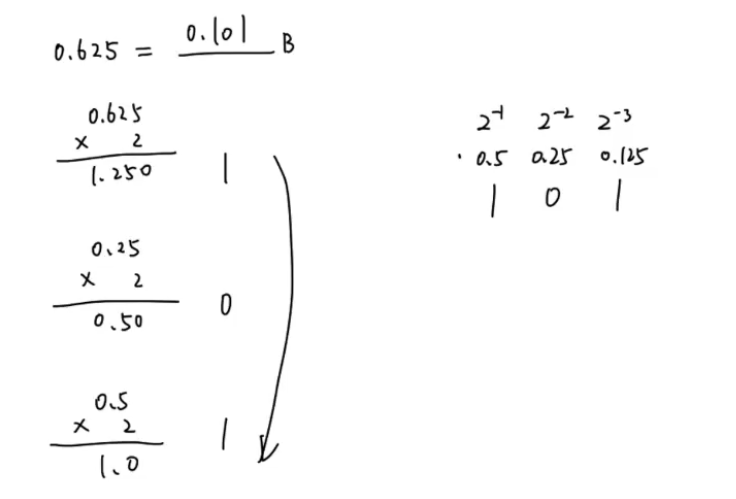 0.625 = 0.101 B
0.625
× 2
1.250 1
0.25
× 2
0.50 0
0.5
× 2
1.0 1
2⁻¹ 2⁻² 2⁻³
0.5 0.25 0.125
1 0 1